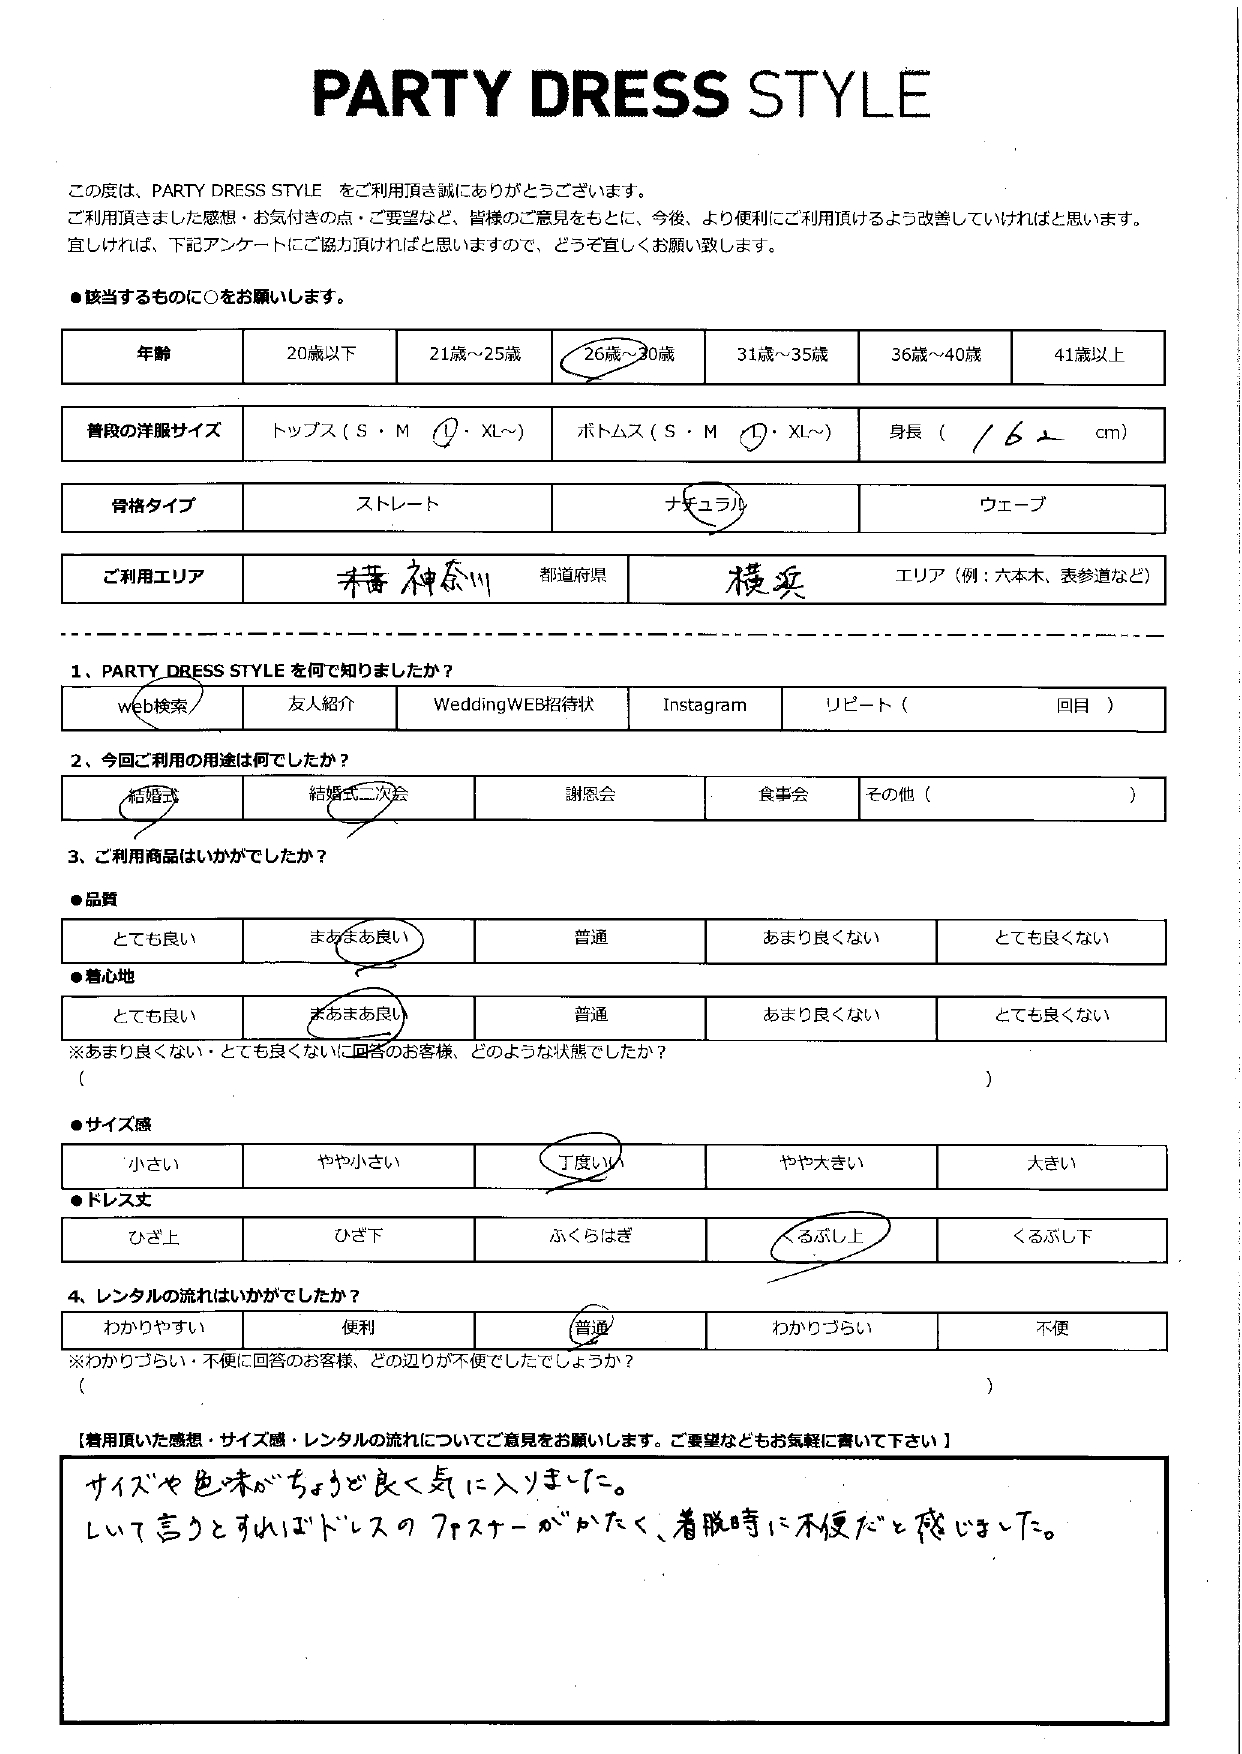 PARTY DRESS STYLE
この度は、PARTY DRESS STYLE　をご利用頂き誠にありがとうございます。
ご利用頂きました感想・お気付きの点・ご要望など、皆様のご意見をもとに、今後、より便利にご利用頂けるよう改善していければと思います。
宜しければ、下記アンケートにご協力頂ければと思いますので、どうぞ宜しくお願い致します。
●該当するものに○をお願いします。
年齢 20歳以下 21歳～25歳 26歳～30歳 31歳～35歳 36歳～40歳 41歳以上
普段の洋服サイズ トップス ( S ・ M L ・ XL～) ボトムス ( S ・ M L ・ XL～) 身長 ( 162 cm)
骨格タイプ ストレート ナチュラル ウェーブ
ご利用エリア 神奈川 都道府県 横浜 エリア（例：六本木、表参道など）
1、PARTY DRESS STYLE を何で知りましたか？
web検索 友人紹介 WeddingWEB招待状 Instagram リピート（ 回目 ）
2、今回ご利用の用途は何でしたか？
結婚式 結婚式二次会 謝恩会 食事会 その他（ ）
3、ご利用商品はいかがでしたか？
●品質
とても良い まあまあ良い 普通 あまり良くない とても良くない
●着心地
とても良い まあまあ良い 普通 あまり良くない とても良くない
※あまり良くない・とても良くないに回答のお客様、どのような状態でしたか？
( )
●サイズ感
小さい やや小さい 丁度いい やや大きい 大きい
●ドレス丈
ひざ上 ひざ下 ふくらはぎ くるぶし上 くるぶし下
4、レンタルの流れはいかがでしたか？
わかりやすい 便利 普通 わかりづらい 不便
※わかりづらい・不便に回答のお客様、どの辺りが不便でしたでしょうか？
( )
【着用頂いた感想・サイズ感・レンタルの流れについてご意見をお願いします。ご要望などもお気軽に書いて下さい 】
サイズや色味がちょうど良く気に入りました。
しいて言うとすればドレスのファスナーがかたく、着脱時に不便だと感じました。